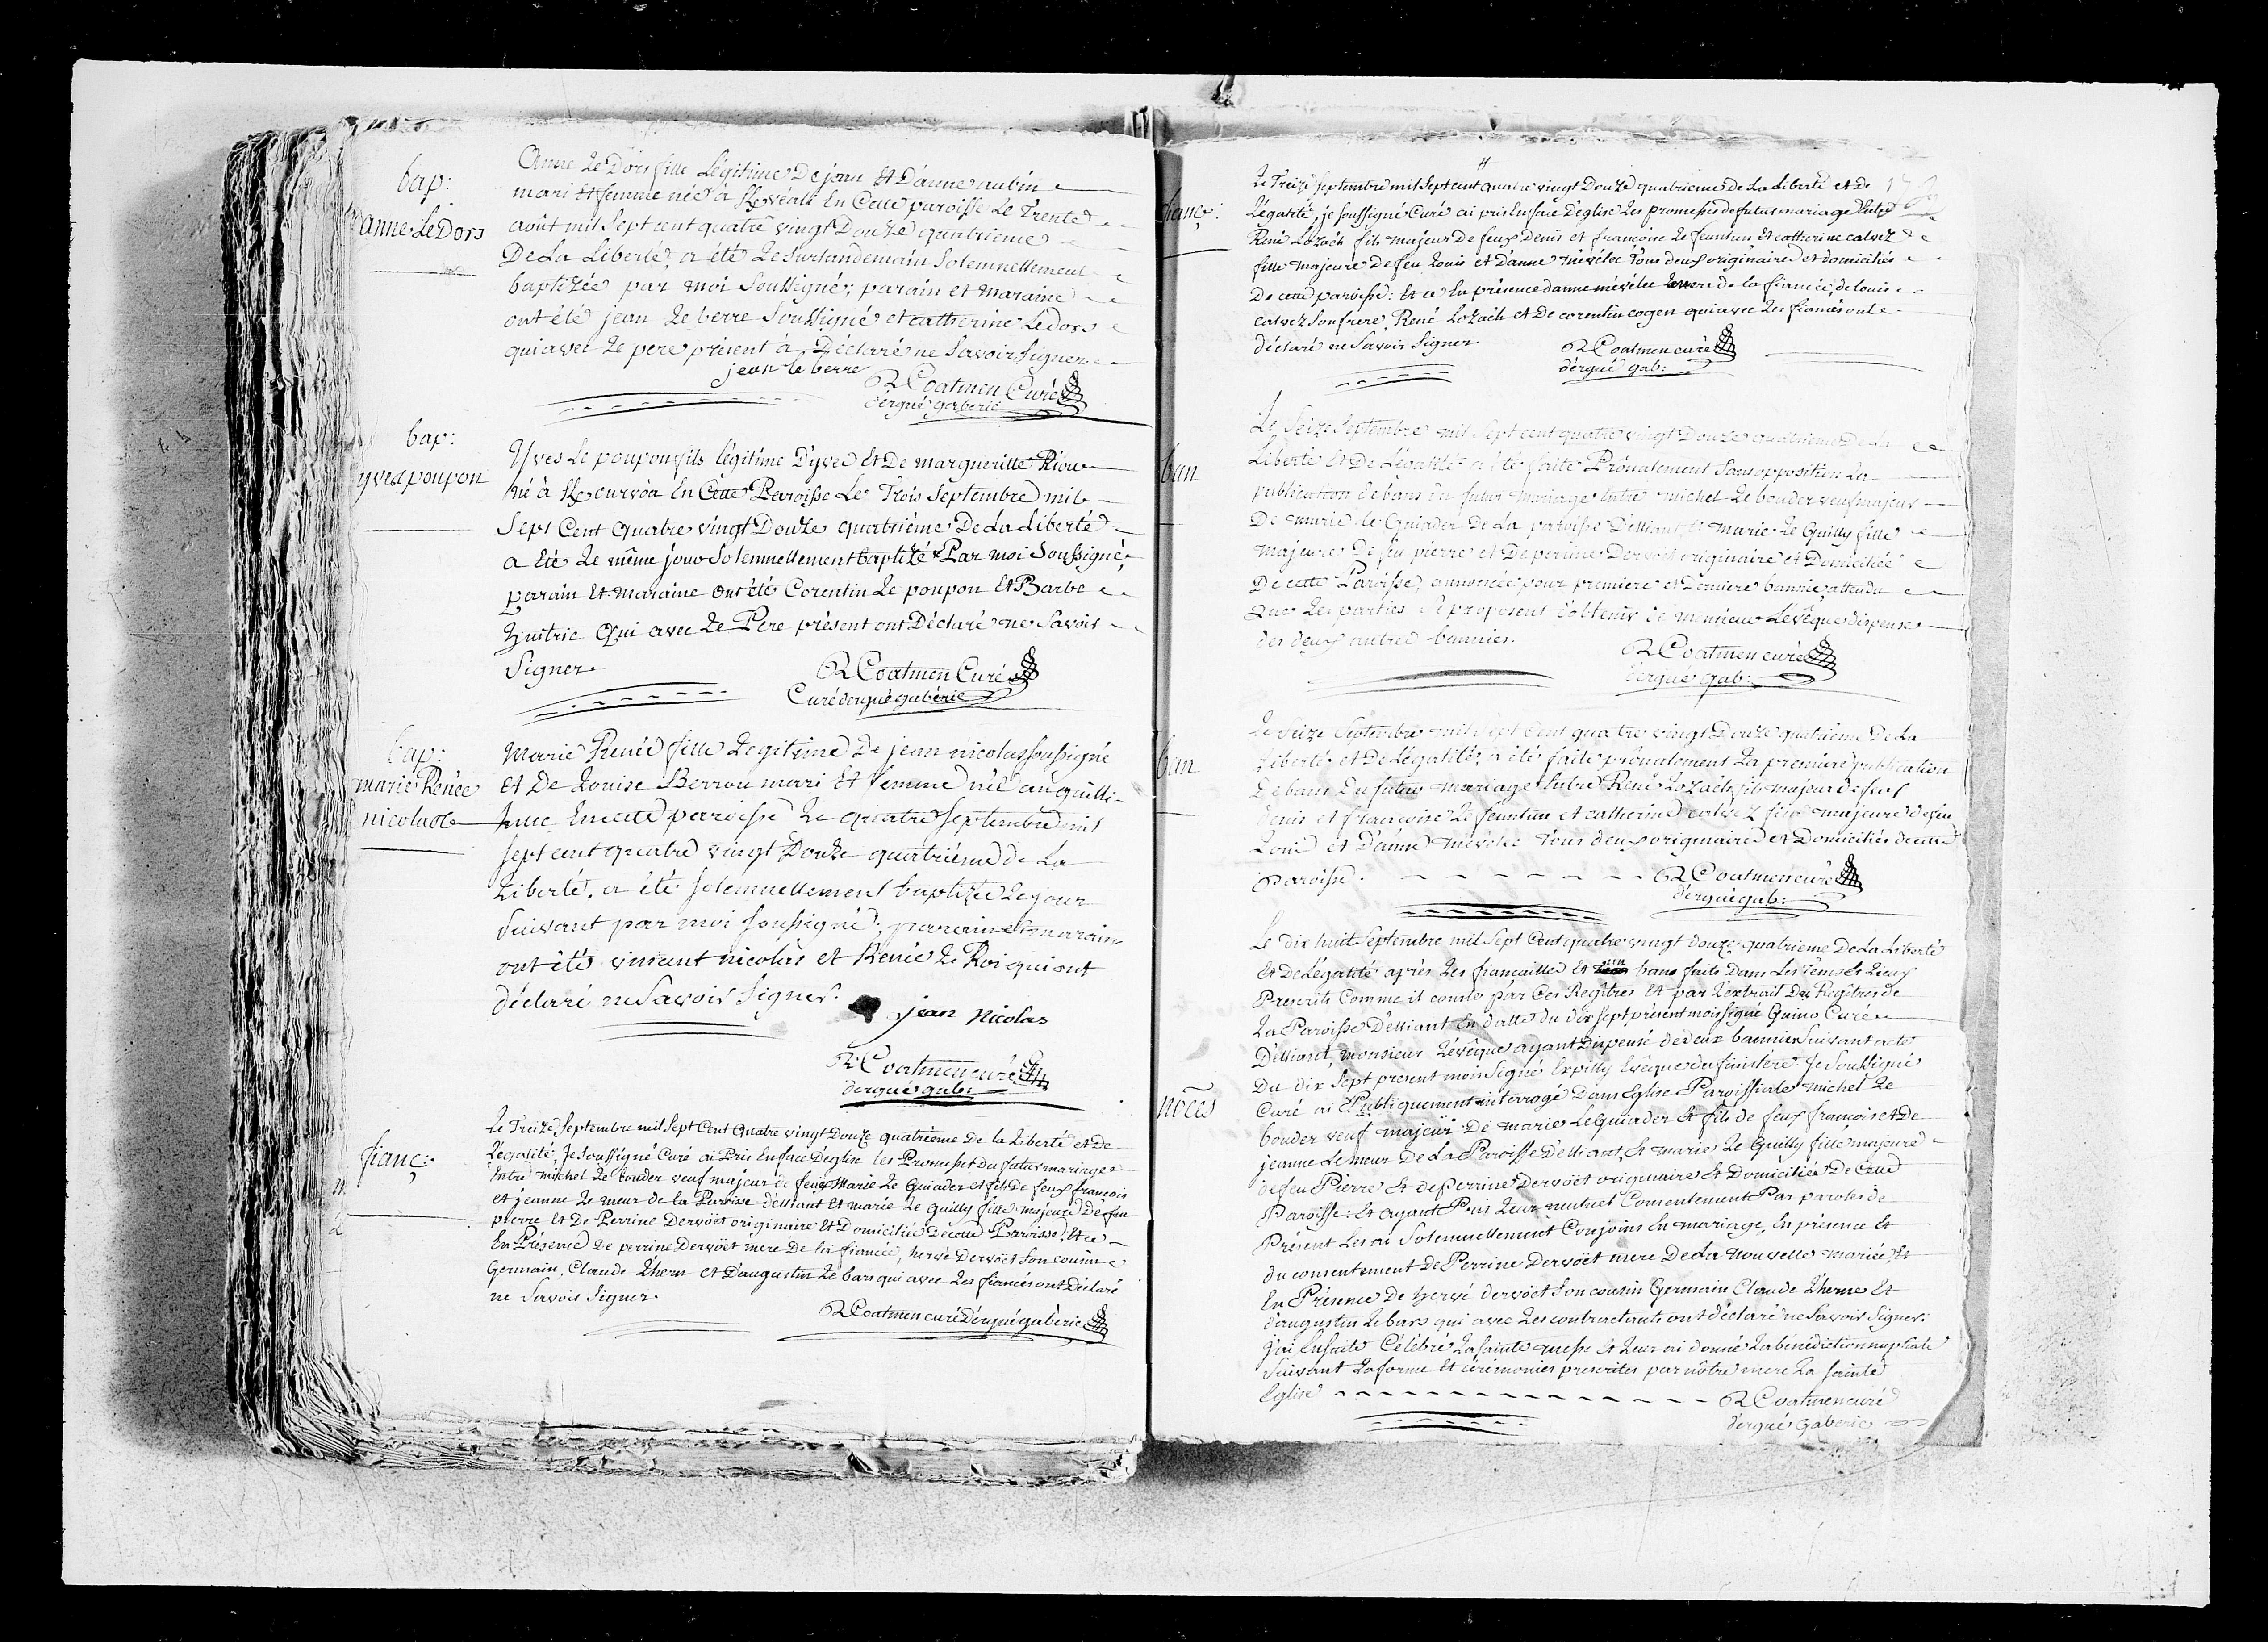 bap:
Anne Le Dors
Anne Le Dors fille Légitime De jean Et D'anne aubin
mari Et femme née à En Cette paroisse Le Trente
août mil Sept cent quatre vingt Douze quatrieme
De La Liberté, a été Le Surlandemain Solemnellement
baptizée par moi Soussigné; parain et maraine
ont été jean Le berre Soussigné et catherine Le dors
qui avec Le pere présent a Déclaré ne Savoir Signer
jean le berre
R Coatmen Curé
dergué gaberic
bap:
yves poupon
Yves Le poupon fils légitime D'yves Et De margueritte Riou
né à Kercurvoa En Cette Paroisse Le Trois Septembre mil
Sept Cent quatre vingt Douze quatrième De La Liberté
a Eté Le même jour Solemnellement baptizé Par moi Soussigné,
parain Et maraine ont été Corentin Le poupon Et Barbe
Qui avec Le Pere présent ont Déclaré ne Savoir
Signer
R Coatmen Curé
Curé dergué gabéric
bap:
marie Renée
nicolas
Marie Renée fille Legitime De jean nicolas Soussigné
Et De Louise Berrou mari Et femme née au quilli-
huec En cette paroisse Le quatre Septembre mil
Sept cent quatre vingt Douze quatriéme de La
Liberté. a été Solemnellement baptizée Le jour
Suivant par moi Soussigné; parain et marain
ont été vincent nicolas et Renée Le Roi qui ont
déclaré ne Savoir Signer.
jean Nicolas
R Coatmen curé
dergué gab:
fianç:
Le Treize Septembre mil Sept Cent Quatre vingt Douze quatrieme de la Liberté et De
L'egalité, Je Soussigné Curé ai Pris En face D'eglise les Promesses Du futur mariage
Entre michel Le bouder veuf majeur de feue Marie Le Quiader et fils De feus francois
et jeanne Le meur de la Paroisse d'elliant Et marie Le Quilly fille majeure De feu
pierre et De Perrine Dervöet originaire Et Domiciliée De cette Paroisse, Et ce
En Présence De perrine Dervöet mere De la fiancée, hervé Dervöet Son cousin
Germain, Claude Lherm et D'augustin Le bars qui avec Les fiancés ont Déclaré
ne Savoir Signer.
R Coatmen curé Dergué gaberic
fianç:
Le Treize Septembre mil Sept cent quatre vingt Douze quatrieme de La Liberté et De
L'égalité, je Soussigné Curé ai pris En face D'eglise Les promesses de futur mariage Entre
René Lozach fils majeur De feus Denis et francoise Le feunteun Et catherine calvez
fille majeure De feu Louis et D'anne mévélec Tous deux originaires et domiciliés
De cette paroisse: Et ce En présence d'anne mévélec mere de la fiancée, de Louis
calvez Son frere, René Lozach et De corentin cogen qui avec Les fiancés ont
déclaré ne Savoir Signer
R Coatmen curé
dergué gab:
ban
Le Seize Septembre mil Sept cent quatre vingt Douze quatrieme De La
Liberté Et De L'égalité a été faite Prônalement Sans opposition La
publication de bans Du futur mariage Entre michel Le bouder veuf majeur
De marie Le Quiader De La paroisse D'elliant Et marie Le Quilly fille
majeure De feu pierre et De perrine Dervöet originaire et Domiciliée
De cette Paroisse, annoncée pour premiere et Derniere bannie, attendu
que Les parties Se proposent d'obtenir de monsieur L'evêque dispense
des deux autres bannies.
R Coatmen curé
dergué gab:
ban
Le Seize Septembre mil Sept Cent quatre vingt Douze quatrieme De La
Liberté et De L'égalité, a été faite prônalement La première publication
De bans Du futur mariage Entre René Lozach fils majeur De feus
Denis et francoise Le feunteun et catherine calvez fille majeure De feu
Louis et D'anne mévélec Tous deux originaires et Domiciliés de cette
Paroisse.
R Coatmen curé
dergué gab:
nôces
Le Dix huit Septembre mil Sept Cent quatre vingt douze quatrieme De La Liberté
Et De L'égalité après Les fiancailles Et un ban faits Dans Les Tems Et Lieux
Prescrits Comme il conste par Ces Regîtres Et par L'extrait Du Regîtres de
La Paroisse D'elliant En datte du dix sept présent mois Signé Guino Curé
D'elliant, monsieur L'évêque ayant Dispensé de deux bannies Suivant acte
Du dix Sept present mois Signé Expilly Evêque du finistere. Je Soussigné
Curé ai Publiquement intérrogé Dans L'église Paroissiale michel Le
bouder veuf majeur De marie Le Quiader et fils de feus francois et De
jeanne Le meur De La Paroisse D'elliant, Et marie Le Quilly fille majeure
de feu Pierre Et de Perrine Dervöet originaire Et Domiciliée De Cette
Paroisse: Et ayant Pris Leur mutuel Consentement Par paroles de
Présent Les ai Solemnellement Conjoins En mariage, En présence Et
du consentement De Perrine Dervöet mere De La Nouvelle mariée, Et
En Présence De hervé dervöet Son cousin Germain Claude Lherme Et
d'augustin Le bars qui avec Les contractants ont déclaré ne Savoir Signer.
J'ai Ensuite Célébré La Sainte messe Et Leur ai donné La bénédiction nuptiale
Suivant La forme Et cérémonies prescrites par nôtre mere La Sainte
Eglise
R Coatmen curé
dergué gaberic